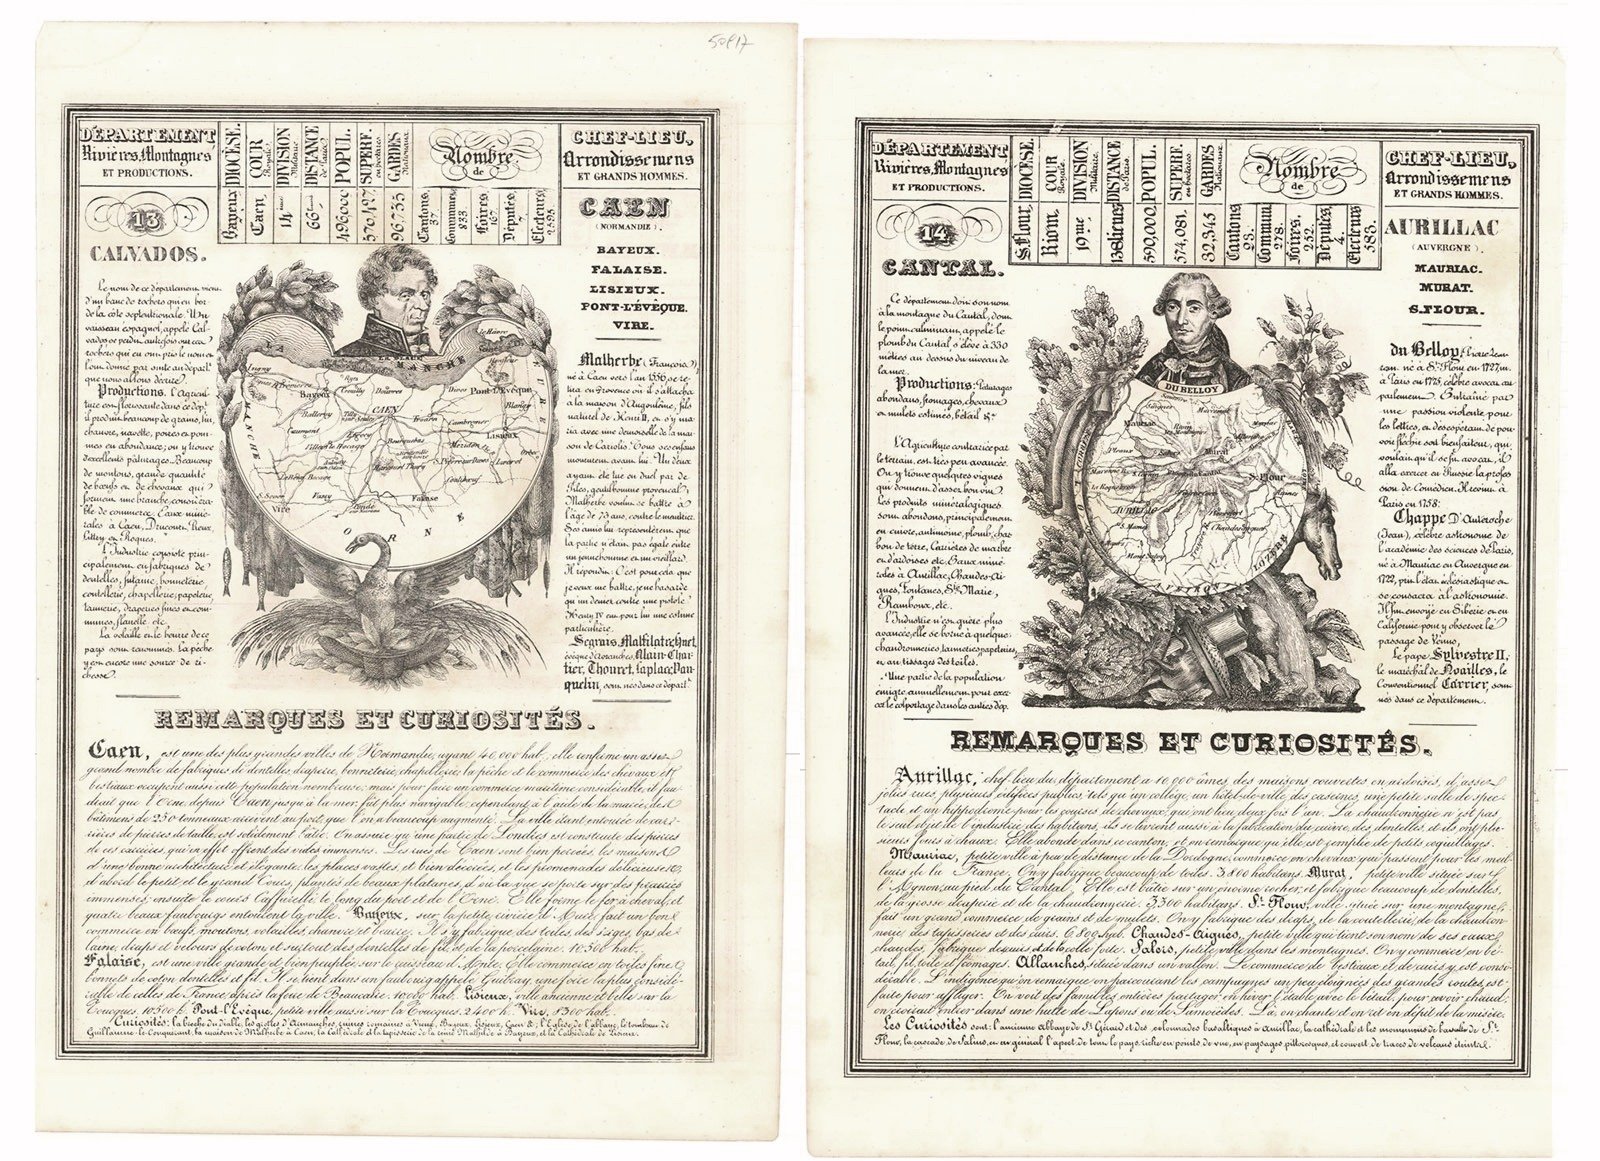 50817
DÉPARTEMENT
Rivières, Montagnes
ET PRODUCTIONS.
DIOCÈSE.
COUR Royale.
DIVISION Militaire
DISTANCE de Paris
POPUL.
SUPERF. en hectares
GARDES Nationaux
Nombre
de
CHEF-LIEU,
Arrondissemens
ET GRANDS HOMMES.
13
CALVADOS.
Bayeux
Caen,
14
496000
570,427
96,735
Cantons 37
Communes
Foires 167
Députés, 7
Electeurs
CAEN
(NORMANDIE).
BAYEUX.
FALAISE.
LISIEUX.
PONT-L'ÉVÊQUE.
VIRE.
Le nom de ce département vient
d'un banc de rochers qui en bor-
de la côte septentrionale. Un
vaisseau espagnol, appelé Cal-
vados se perdit autrefois sur ces
rochers qui en ont pris le nom et
l'ont donné par suite au départ.t
que nous allons décrire.
Productions. l'agricul-
ture est florissante dans ce dép.t
il produit beaucoup de grains, lin,
chanvre, navette, poires et pom-
mes en abondance; on y trouve
d'excellents pâturages. Beaucoup
de moutons, grande quantité
de bœufs et de chevaux qui
forment une branche considéra-
ble de commerce. Eaux miné-
rales à Caen,
L'Industrie consiste prin-
cipalement en fabriques de
dentelles, futaine, bonneterie,
coutellerie, chapellerie, papeterie,
tannerie, draperies fines et com-
munes, flanelle etc.
La volaille et le beurre de ce
pays sont renommés. La pêche
y est encore une source de ri-
chesse.
LA PLACE
LA MANCHE
MANCHE
EURE
ORNE
Isigny
Bayeux
CAEN
Pont l'Évêque
Lisieux
Falaise
Vire
le Hâvre
Honfleur
Orbec
Malherbe (François)
né à Caen vers l'an 1556, se re-
tira en Provence où il s'attacha
à la maison d'Angoulême, fils
naturel de Henri II, et s'y ma-
ria avec une demoiselle de la mai-
son de Cariolis. Tous ses enfans
moururent avant lui. Un d'eux
ayant été tué en duel par de
Piles, gentilhomme provençal,
Malherbe voulut se battre à
l'âge de 73 ans, contre le meurtrier.
Ses amis lui représentèrent que
la partie n'était pas égale entre
un jeune homme et un vieillard.
Il répondit: C'est pour cela que
je veux me battre, je ne hasarde
qu'un denier contre une pistole.
Henri IV eut pour lui une estime
particulière.
Segrais, Malfilatre, Huet,
évêque d'Avranches, Alain-Char-
tier, Thouret, la place, Vau-
quelin, sont nés dans ce départ.t
REMARQUES ET CURIOSITÉS.
Caen, est une des plus grandes villes de Normandie, ayant 40,000 hab., elle renferme un assez
grand nombre de fabriques de dentelles, draperie, bonneterie, chapellerie; la pêche et le commerce des chevaux et
bestiaux occupent aussi cette population nombreuse; mais pour faire un commerce maritime considérable il fau-
drait que l'Orne, depuis Caen jusqu'à la mer, fût plus navigable; cependant à l'aide de la marée, des
bâtimens de 250 tonneaux arrivent au port, que l'on a beaucoup augmenté. La ville étant entourée de car-
rières de pierres de taille, est solidement bâtie. On assure qu'une partie de Londres est construite des pierres
de ces carrières, qui en effet offrent des vides immenses. Les rues de Caen sont bien percées, les maisons
d'une bonne architecture et élégante, les places vastes et bien décorées, et les promenades délicieuses,
d'abord le petit et le grand Cours, plantés de beaux platanes, d'où la vue se porte sur des prairies
immenses; ensuite le cours Caffarelli, le long du port et de l'Orne. Elle forme le fer à cheval, et
quatre beaux faubourgs entourent la ville. Bayeux, sur la petite rivière d'Aure, fait un bon
commerce en bœufs, moutons, volailles, chanvre et beurre. Il s'y fabrique des toiles, des serges, bas de
laine, draps et velours de coton et surtout des dentelles de fil, et de la porcelaine. 10,300 hab.
Falaise, est une ville grande et bien peuplée, sur le ruisseau d'Ante. Elle commerce en toiles fines,
bonnets de coton dentelles et fil. Il se tient dans un faubourg appelé Guibray, une foire la plus considé-
rable de celles de France, après la foire de Beaucaire. 10,000 hab. Lisieux, ville ancienne et belle sur la
Toucques. 10,300 h. Pont-l'Evêque, petite ville aussi sur la Toucques. 2,400 h. Vire, 8,300 hab.
Curiosités: la brèche du diable, ruines romaines à Vieux, Bayeux, Lisieux, Caen &; l'Eglise de l'abbaye, le tombeau de
Guillaume le Conquérant, la maison de Malherbe à Caen, la Cathédrale et la tapisserie de la reine Mathilde à Bayeux, et la Cathédrale de Lisieux.
DÉPARTEMENT
Rivières, Montagnes
ET PRODUCTIONS.
DIOCÈSE.
COUR Royale.
DIVISION Militaire
DISTANCE de Paris.
POPUL.
SUPERF. en hectares
GARDES Nationaux
Nombre
de
CHEF-LIEU,
Arrondissemens
ET GRANDS HOMMES.
14
CANTAL.
S. Flour,
Riom,
19me
138 lieues
574,081.
32,345
Cantons 23.
Commun. 278.
Foires. 252.
Députés, 4.
Electeurs 583.
AURILLAC
(AUVERGNE).
MAURIAC.
MURAT.
S. FLOUR.
Ce département doit son nom
à la montagne du Cantal, dont
le point culminant, appelé le
plomb du Cantal s'élève à 330
mètres au dessus du niveau de
la mer.
Productions: Pâturages
abondans, fromages, chevaux
et mulets estimés, bétail &.
L'Agriculture contrariée par
le terrain, est très peu avancée.
On y trouve quelques vignes
qui donnent d'assez bon vin.
Les produits minéralogiques
sont abondans, principalement
en cuivre, antimoine, plomb, char-
bon de terre, Carrières de marbre
et d'ardoises etc. Eaux miné-
rales à Aurillac, Chaudes-Ai-
gues, Fontanes, Ste Marie,
L'Industrie n'est guère plus
avancée, elle se borne à quelques
chaudronneries, tanneries, papeteries,
et au tissage des toiles.
Une partie de la population
émigre annuellement pour exer-
cer le colportage dans les autres dép.
DU BELLOY
Mauriac
Murat
S. Flour
AURILLAC
Pleaux
Salers
CORREZE
LOZERE
AVEYRON
du Belloy, Pierre Laurent,
né à St Flour en 1727, m.
à Paris en 1775, célèbre avocat au
parlement. Entraîné par
une passion violente pour
les lettres, et désespérant de pou-
voir fléchir son bienfaiteur, qui
voulait qu'il se fit avocat, il
alla exercer en Russie la profes-
sion de Comédien. Il revint à
Paris en 1758.
Chappe D'Auteroche
(Jean), célèbre astronome de
l'académie des sciences de Paris,
né à Mauriac en Auvergne en
1722, prit l'état ecclésiastique et
se consacra à l'astronomie.
Il fut envoyé en Sibérie et en
Californie pour y observer le
passage de Vénus,
Le pape Sylvestre II,
le maréchal de Noailles, le
Conventionnel Carrier, sont
nés dans ce département.
REMARQUES ET CURIOSITÉS.
Aurillac, chef-lieu du département a 10,000 âmes, des maisons couvertes en ardoises, d'assez
jolies rues, plusieurs édifices publics, tels qu'un collège, un hôtel-de-ville, des casernes, une petite salle de spec-
tacle et un hippodrome pour les courses de chevaux, qui ont lieu deux fois l'an. La chaudronnerie n'est pas
le seul objet de l'industrie des habitans, ils se livrent aussi à la fabrication du cuivre, des dentelles, et ils ont plu-
sieurs fours à chaux. Elle abonde dans ce canton, et on remarque qu'elle est remplie de petits coquillages.
Mauriac, petite ville à peu de distance de la Dordogne, commerce en chevaux qui passent pour les meil-
leurs de la France. On y fabrique beaucoup de toiles. 3,800 habitans. Murat, petite ville située sur
l'Alagnon, au pied du Cantal. Elle est bâtie sur un énorme rocher, et fabrique beaucoup de dentelles,
de la grosse draperie et de la chaudronnerie. 3,300 habitans. St Flour, ville située sur une montagne,
fait un grand commerce de grains et de mulets. On y fabrique des draps, de la coutellerie, de la chaudron-
nerie, des tapisseries et des cuirs. 6,800 hab. Chaudes-Aigues, petite ville qui tient son nom de ses eaux
chaudes, fabrique des cuirs et de la colle forte. Salers, petite ville dans les montagnes. On y commerce en bé-
tail, fil, toile et fromages. Allanches, située dans un vallon. Le commerce de bestiaux et de cuirs y est consi-
dérable. L'indigence qu'on remarque en parcourant les campagnes un peu éloignées des grandes routes, est
faite pour affliger. On voit des familles entières partager en hiver l'étable avec le bétail, pour avoir chaud.
on croirait entrer dans une hutte de Lapons ou de Samoièdes. Là, on chante et on rit en dépit de la misère.
Les Curiosités sont: l'ancienne abbaye de St Gérard et des colonnades basaltiques à Aurillac, la cathédrale et les monumens de la ville de St-
Flour, la cascade de Salins, et en général l'aspect de tout le pays, riche en points de vue, en paysages pittoresques, et couvert de traces de volcans éteints.